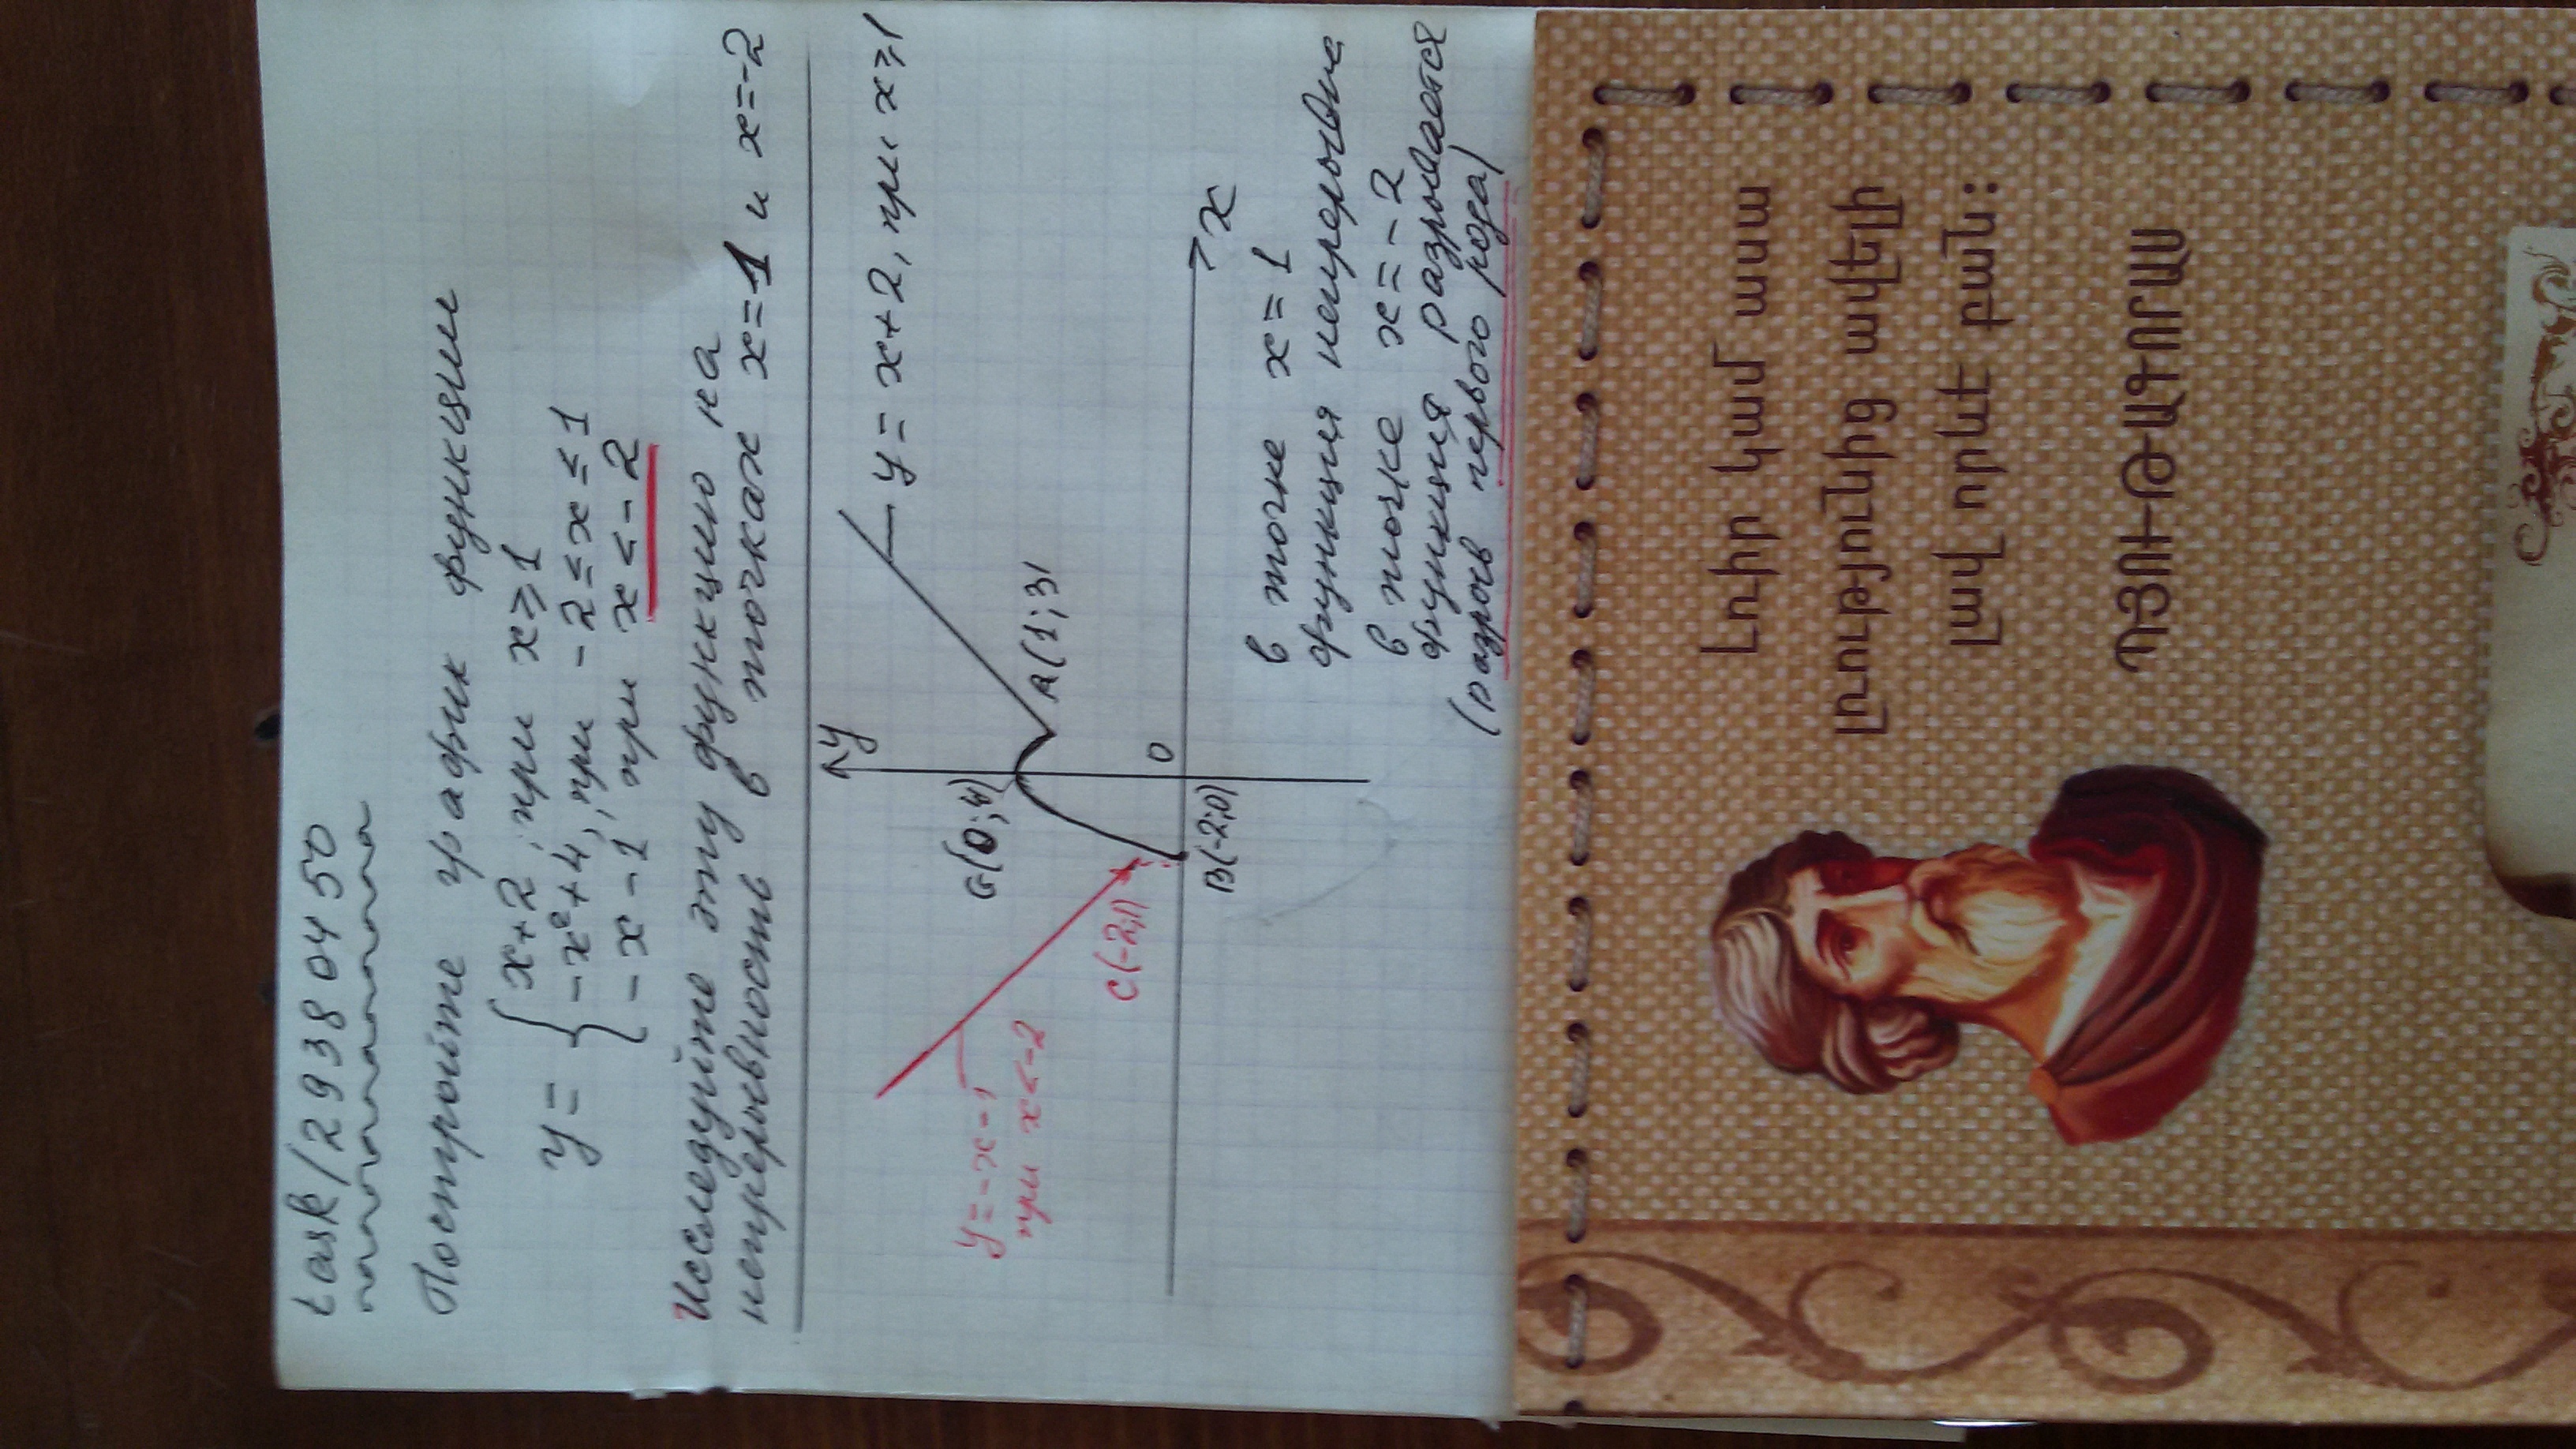 task/29380450
Постройте график функции
y = { x+2, при x ≥ 1
-x²+4, при -2 ≤ x ≤ 1
-x-1, при x < -2
Исследуйте эту функцию на
непрерывность в точках x=1 и x=-2
y
y = x+2, при x ≥ 1
G(0; 4)
A(1; 3)
y = -x-1
при x<-2
C(-2; 1)
B(-2; 0)
0
x
в точке x = 1
функция непрерывна
в точке x = -2
функция разрывается
(разрыв первого рода)
Լռիր կամ ասա
լռությունից ավելի
լավ որևէ բան:
ՊՅՈՒԹԱԳՈՐԱՍ